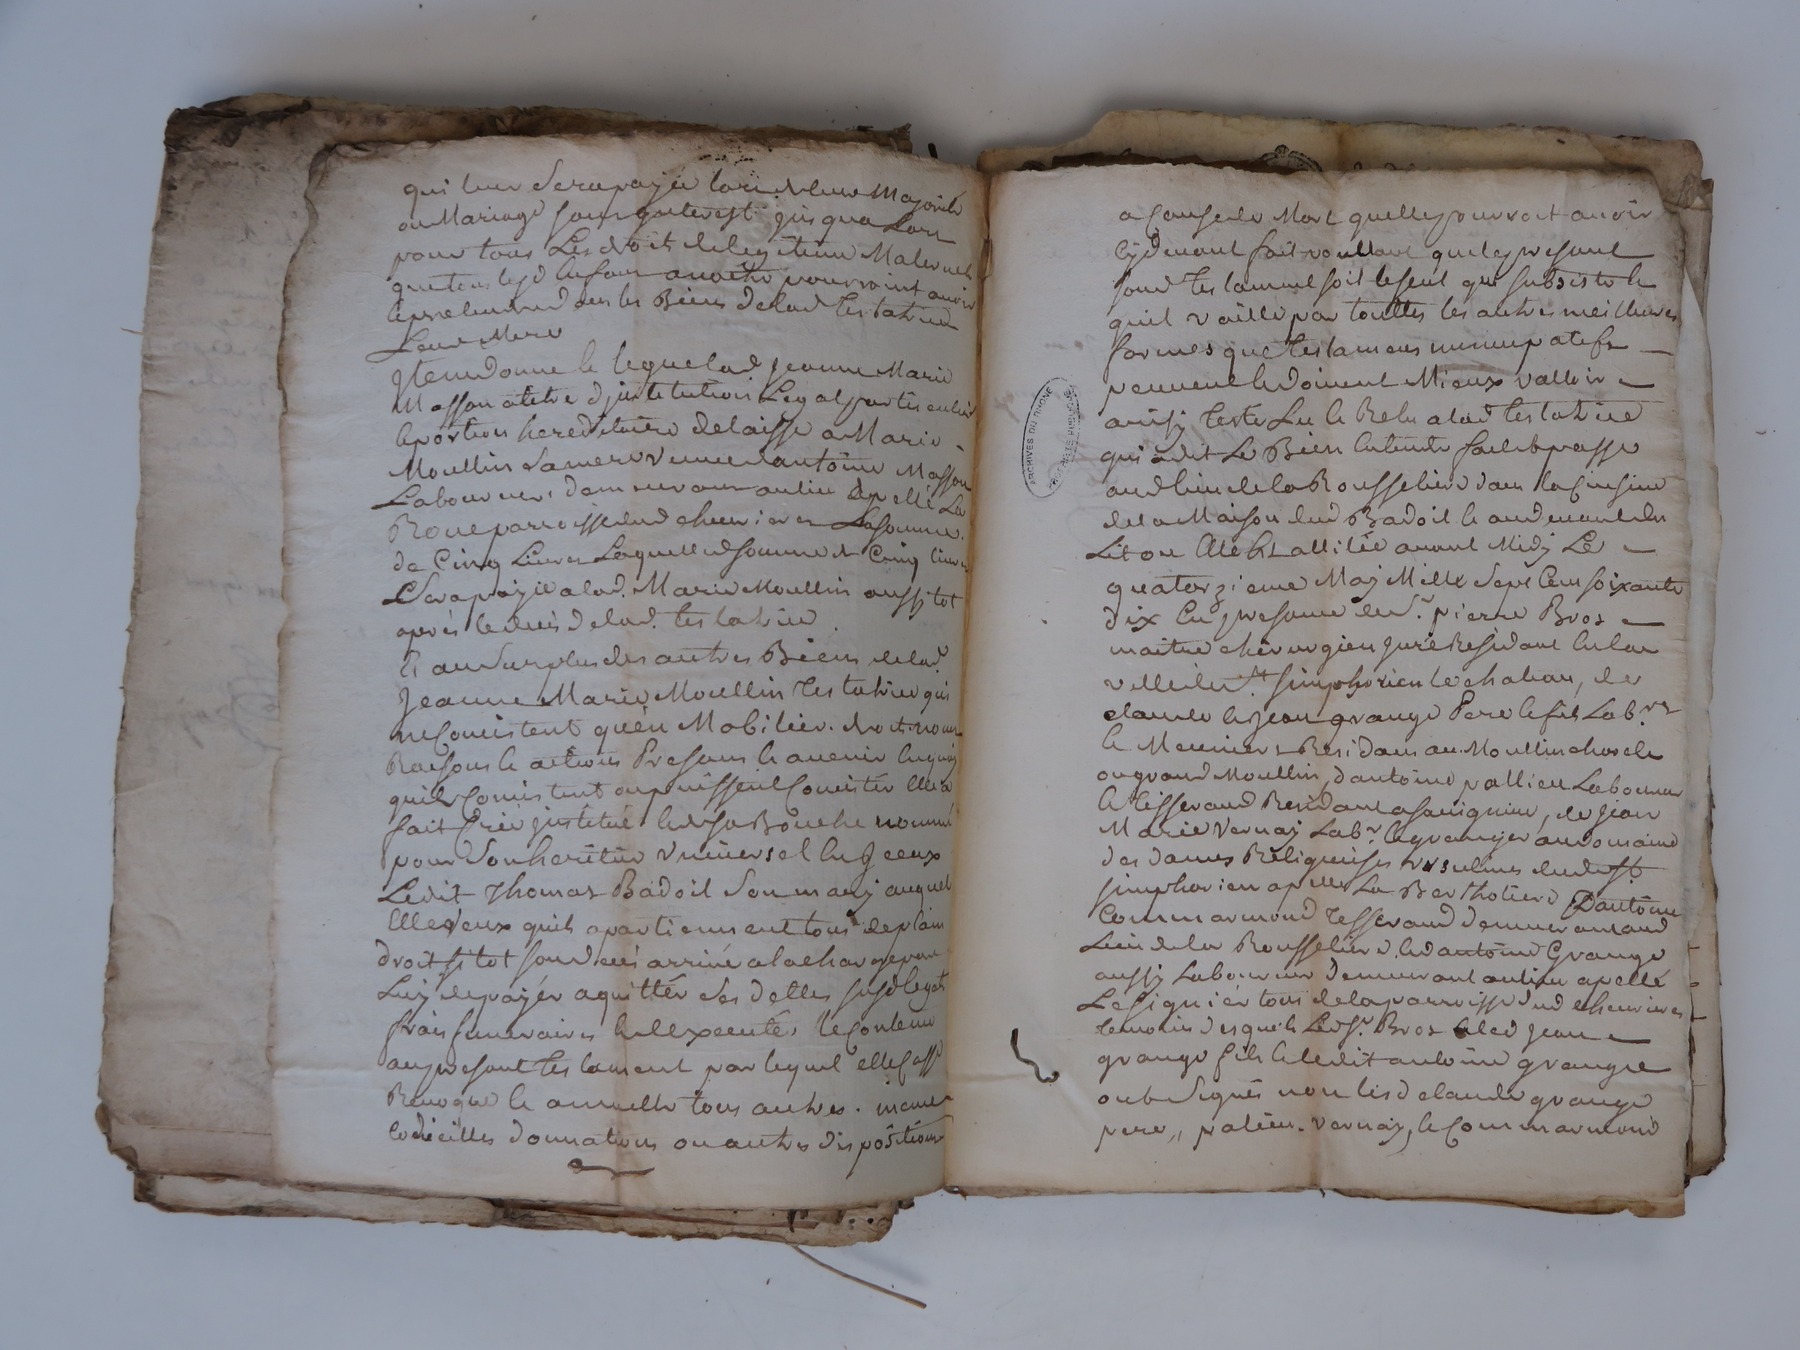 qui leur sera payée lors de leur Majorité
ou Mariage sans interest jusqua Lors
pour tous Les droits de legitime Maternels
que tous lesd Enfans a naitre pourroint avoir
& prétendre sur les Biens de lad Testatrice
Leur Mere
Item donne & legue lad Jeanne Marie
Masson a titre d'jnstitution Legat particulier
& portion hereditaire delaisse a Marie
Moullin sa mere veuve d'antoine Masson
Laboureur, demeurant au lieu apellé La
Roue parroisse dud chevrieres La somme
de Cinq Livres Laquelle de somme de Cinq livres
Sera payée a lad. Marie Moullin aussitot
après le decès de lad. testatrice
Et au Surplus des autres Biens de lad.
Jeanne Marie Moullin Testatrice qui
ne Consistent qu'en Mobilier. droits noms
Raisons & actions Presens & avenir en quoy
quils Consistent ou puissent Consister Elle a
fait Créé jnstitué & de sa Bouche nommé
pour Son heritier vniversel en Jceux
Ledit Thomas Badoil Son mary auquel
Elle veux quils apartiennent tous de plain
droit si tot son decès arrivé a la charge par
Luy de payér aquittér ses dettes susd legats
frais funeraires & d'Exeeuter le Contenu
au present Testament par lequel elle Casse
Revoque & annulle tous autres.
Codicilles donnations ou autres dispositions
a Cause de Mort quelle pourroit avoir
Cy devant fait voullant que le present
sond Testament soit le seul qui subsiste &
quil vaille par touttes les autres meilleures
formes que Testamens nuncupatifs
peuvent & doivent Mieux valloir
ainsy Testé Lu & Relu a lad testatrice
qui a dit Le Bien Entendre fait & passé
aud lieu de la Rousseliere dans la Cuisine
de la Maison dud Badoil & au devant du
Lit ou Elle Est allitée avant Midy Le
quatorzieme May Mille Sept Cens soixante
dix En presence de Sr. pierre Bros
maitre chirurgien juré Residant En la
ville de St simphorien le chateau, de
claude & jean grange Pere & fils Lab.rs
& Meuniers Residans au Moullin
ou grand Moullin, d'antoine pallieu Laboureur
& Tisserand Residant a savignieu, de jean
Marie Vernay Labr. & granger au Domaine
des dames Religieuses vrsulines dud St.
simphorien apellé La Bertholiere D'antoine
Commarmond Tisserand demeurant aud
Lieu de la Rousseliere & d'antoine Grange
aussy Laboureur demeurant au lieu apellé
Le signiér tous de la parroisse dud chevrieres
Temoins desquels Led Sr. Bros Et led jean
grange fils & ledit antoine grange
ont Signés non lesd claude grange
pere, palieu. Vernay, & Commarmond
ARCHIVES DU RHONE